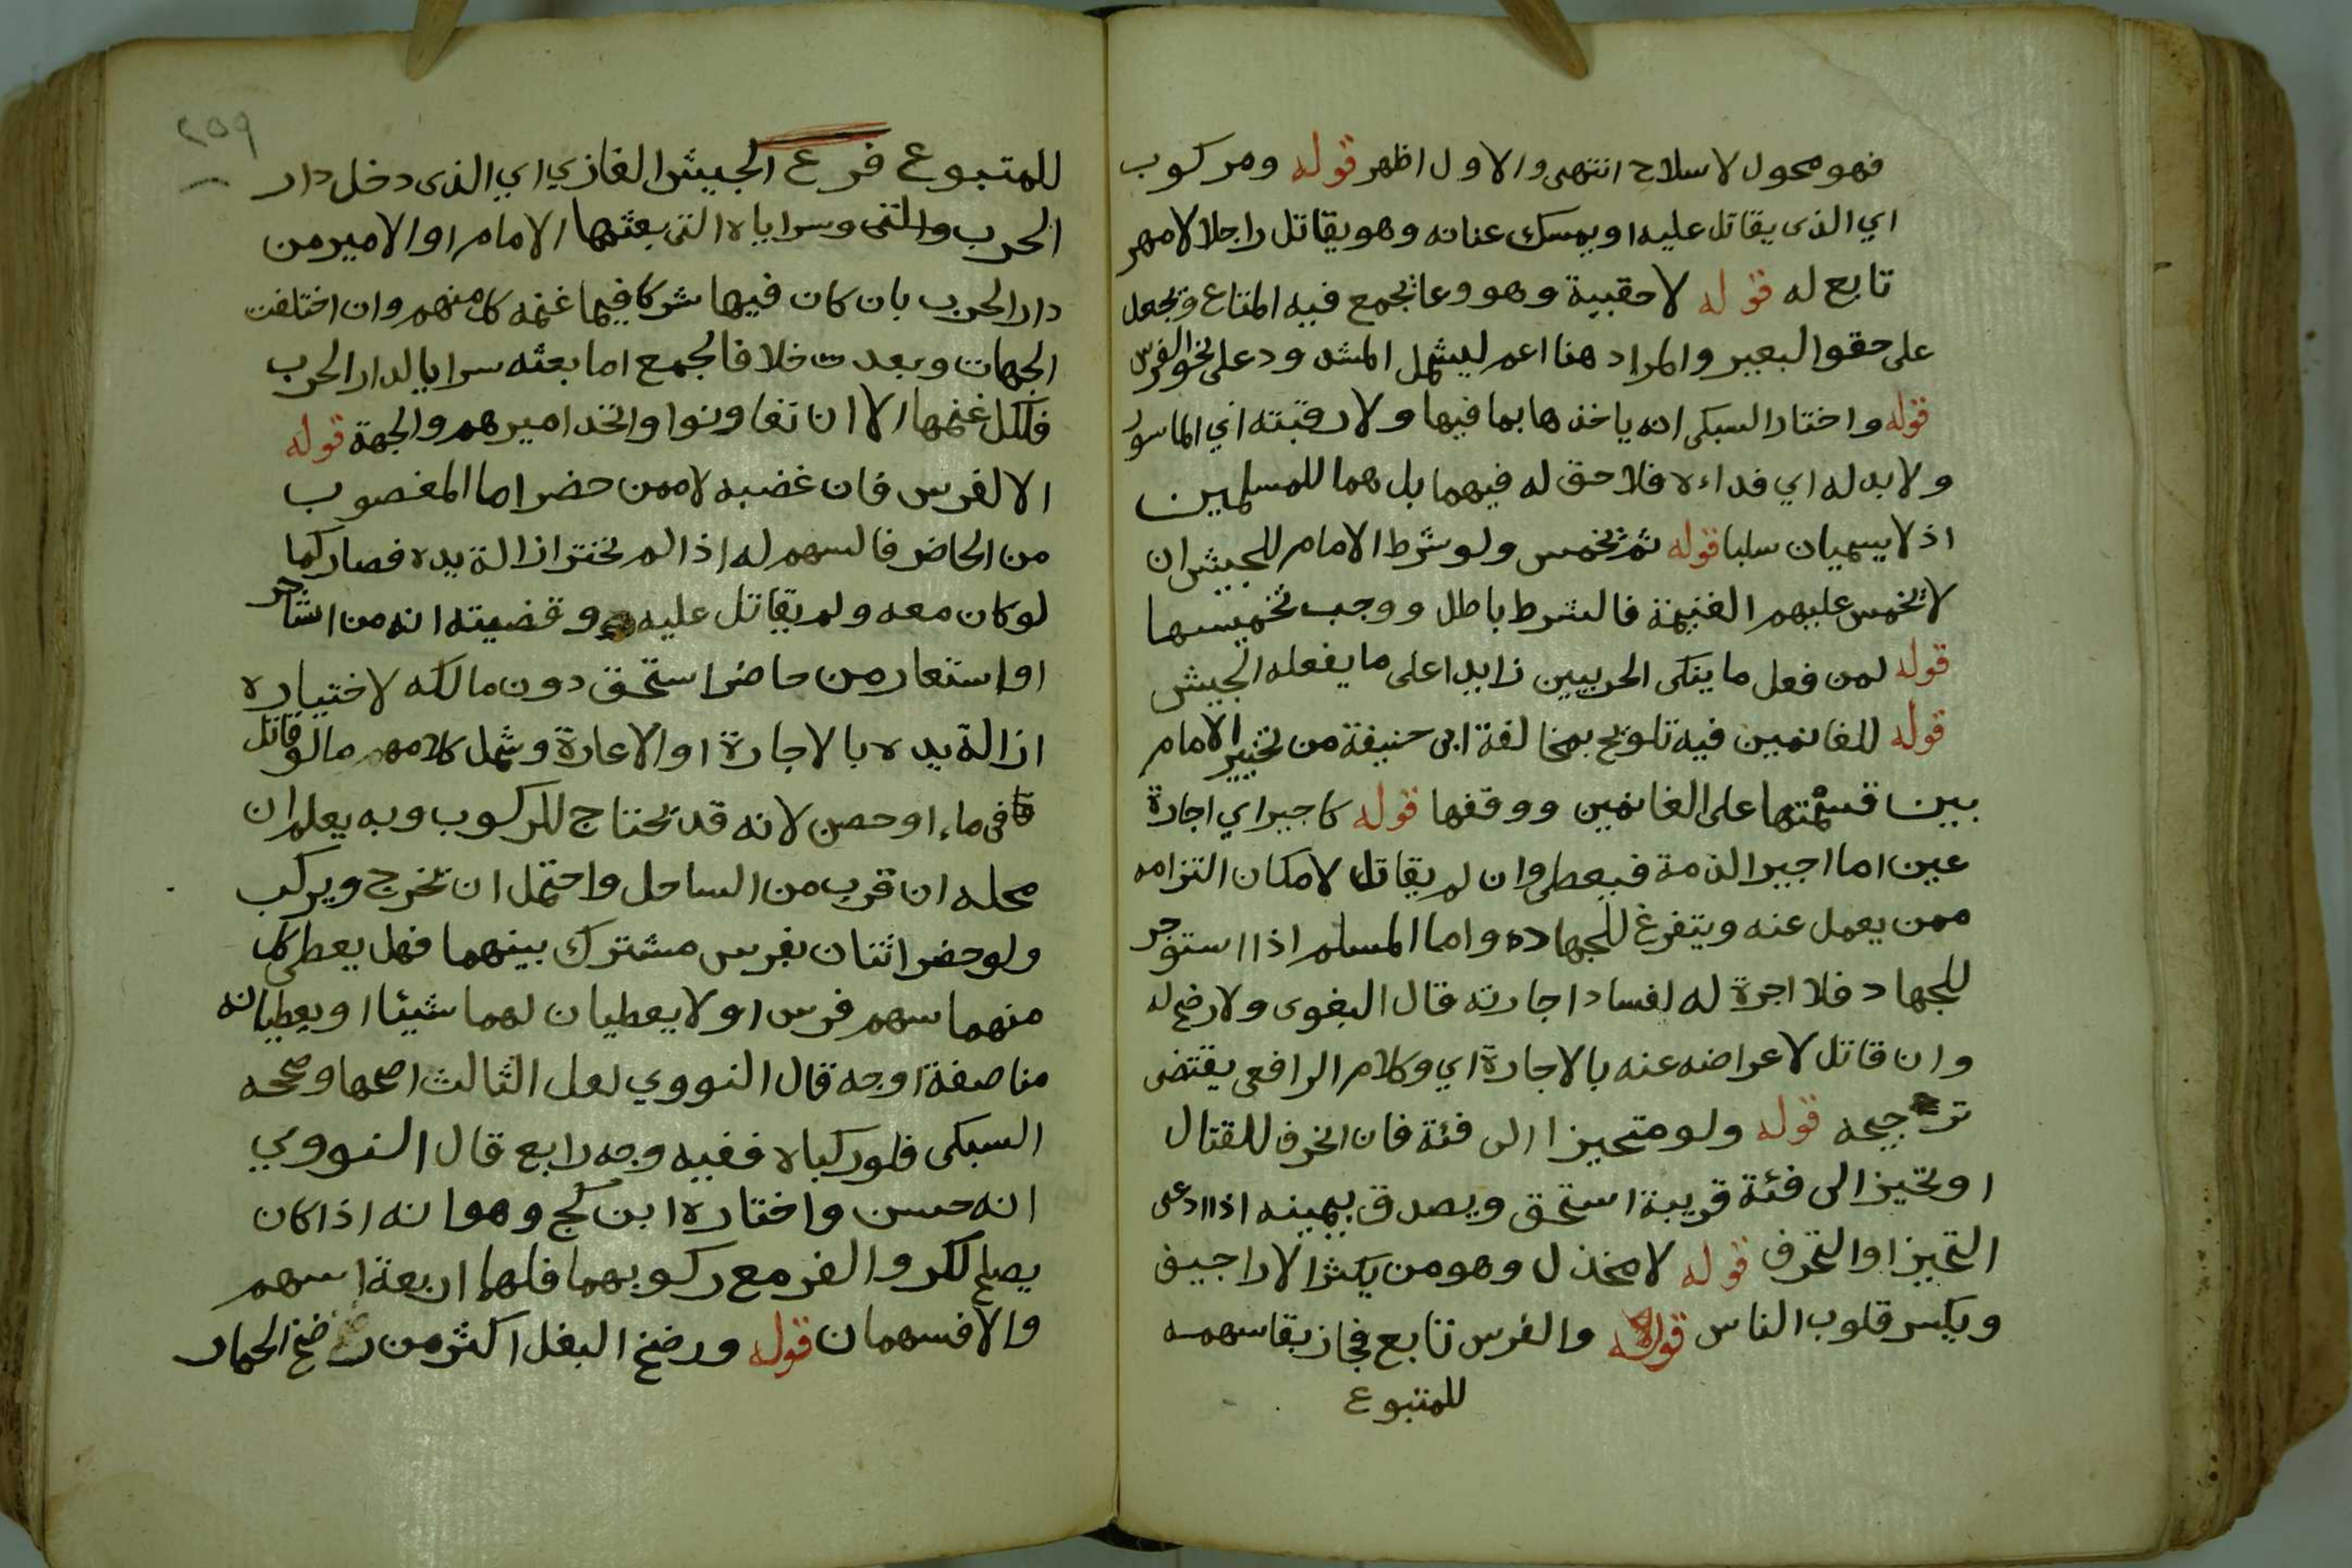 فهو محول لا سلاح انتهى والاول اظهر قوله ومركوب
اي الذى يقاتل عليه او يمسك عنانه وهو يقاتل راجلا لا مهر
تابع له قوله لا حقيبة وهو وعا يجمع فيه المتاع ويجعل
على حقو البعير والمراد هنا اعم ليشمل المشدود على نحو الفرس
قوله واختار السبكى انه ياخذها بما فيها ولا رقبته اي الماسور
ولا بدله اي فداءه فلا حق له فيهما بل هما للمسلمين
اذ لا يسميان سلبا قوله ثم يخمس ولو شرط الامام للجيش ان
لا يخمس عليهم الغنيمة فالشرط باطل ووجب تخميسها
قوله لمن فعل ما ينكى الحربيين زايدا على ما يفعله الجيش
قوله للغانمين فيه تلويح بمخالفة ابى حنيفة من تخيير الامام
بين قسمتها على الغانمين ووقفها قوله كاجير اي اجارة
عين اما اجير الذمة فيعطى وان لم يقاتل لامكان التزامه
ممن يعمل عنه ويتفرغ للجهاده واما المسلم اذا استوجر
للجهاد فلا اجرة له لفساد اجارته قال البغوى ولا رضخ له
وان قاتل لاعراضه عنه بالاجارة اي وكلام الرافعى يقتضى
ترجيحه قوله ولو متحيزا الى فئة فان انحرف للقتال
او تحيز الى فئة قريبة استحق ويصدق بيمينه اذا ادعى
التحيز او التحرف قوله لا مخذل وهو من يكثر الاراجيف
ويكسر قلوب الناس قوله والفرس تابع فجاز بقا سهمه
للمتبوع
٢٥٩
للمتبوع فرع الجيش الغازي اي الذى دخل دار
الحرب والتى وسراياه التى بعثها الامام او الامير من
دار الحرب بان كان فيها شركا فيما غنمه كل منهم وان اختلفت
الجهات وبعدت خلافا لجمع اما بعثه سرايا لدار الحرب
فلكل غنمها الا ان تعاونوا واتحد اميرهم والجهة قوله
الا لفرس فان غضبه لا ممن حضر اما المغصوب
من الحاضر فالسهم له اذ لم يختر ازالة يده فصار كما
لو كان معه ولم يقاتل عليه وقضيته انه من استاجر
او استعار من حاضر استحق دون مالكه لاختياره
ازالة يده بالاجارة او الاعارة وشمل كلامهم ما لو قاتل
فى ماء او حصن لانه قد يحتاج للركوب وبه يعلم ان
محله ان قرب من الساحل واحتمل ان يخرج ويركب
ولو حضر اثنان بفرس مشترك بينهما فهل يعطى كل
منهما سهم فرس او لا يعطيان لهما شيئا او يعطيانه
مناصفة اوجه قال النووي لعل الثالث اصحها وصححه
السبكى فلو ركباه ففيه وجه رابع قال النووي
انه حسن واختاره ابن كج وهو انه اذا كان
يصلح للكر والفر مع ركوبهما فلهما اربعة اسهم
والا فسهمان قوله ورضخ البغل اكثر من رضخ الحمار